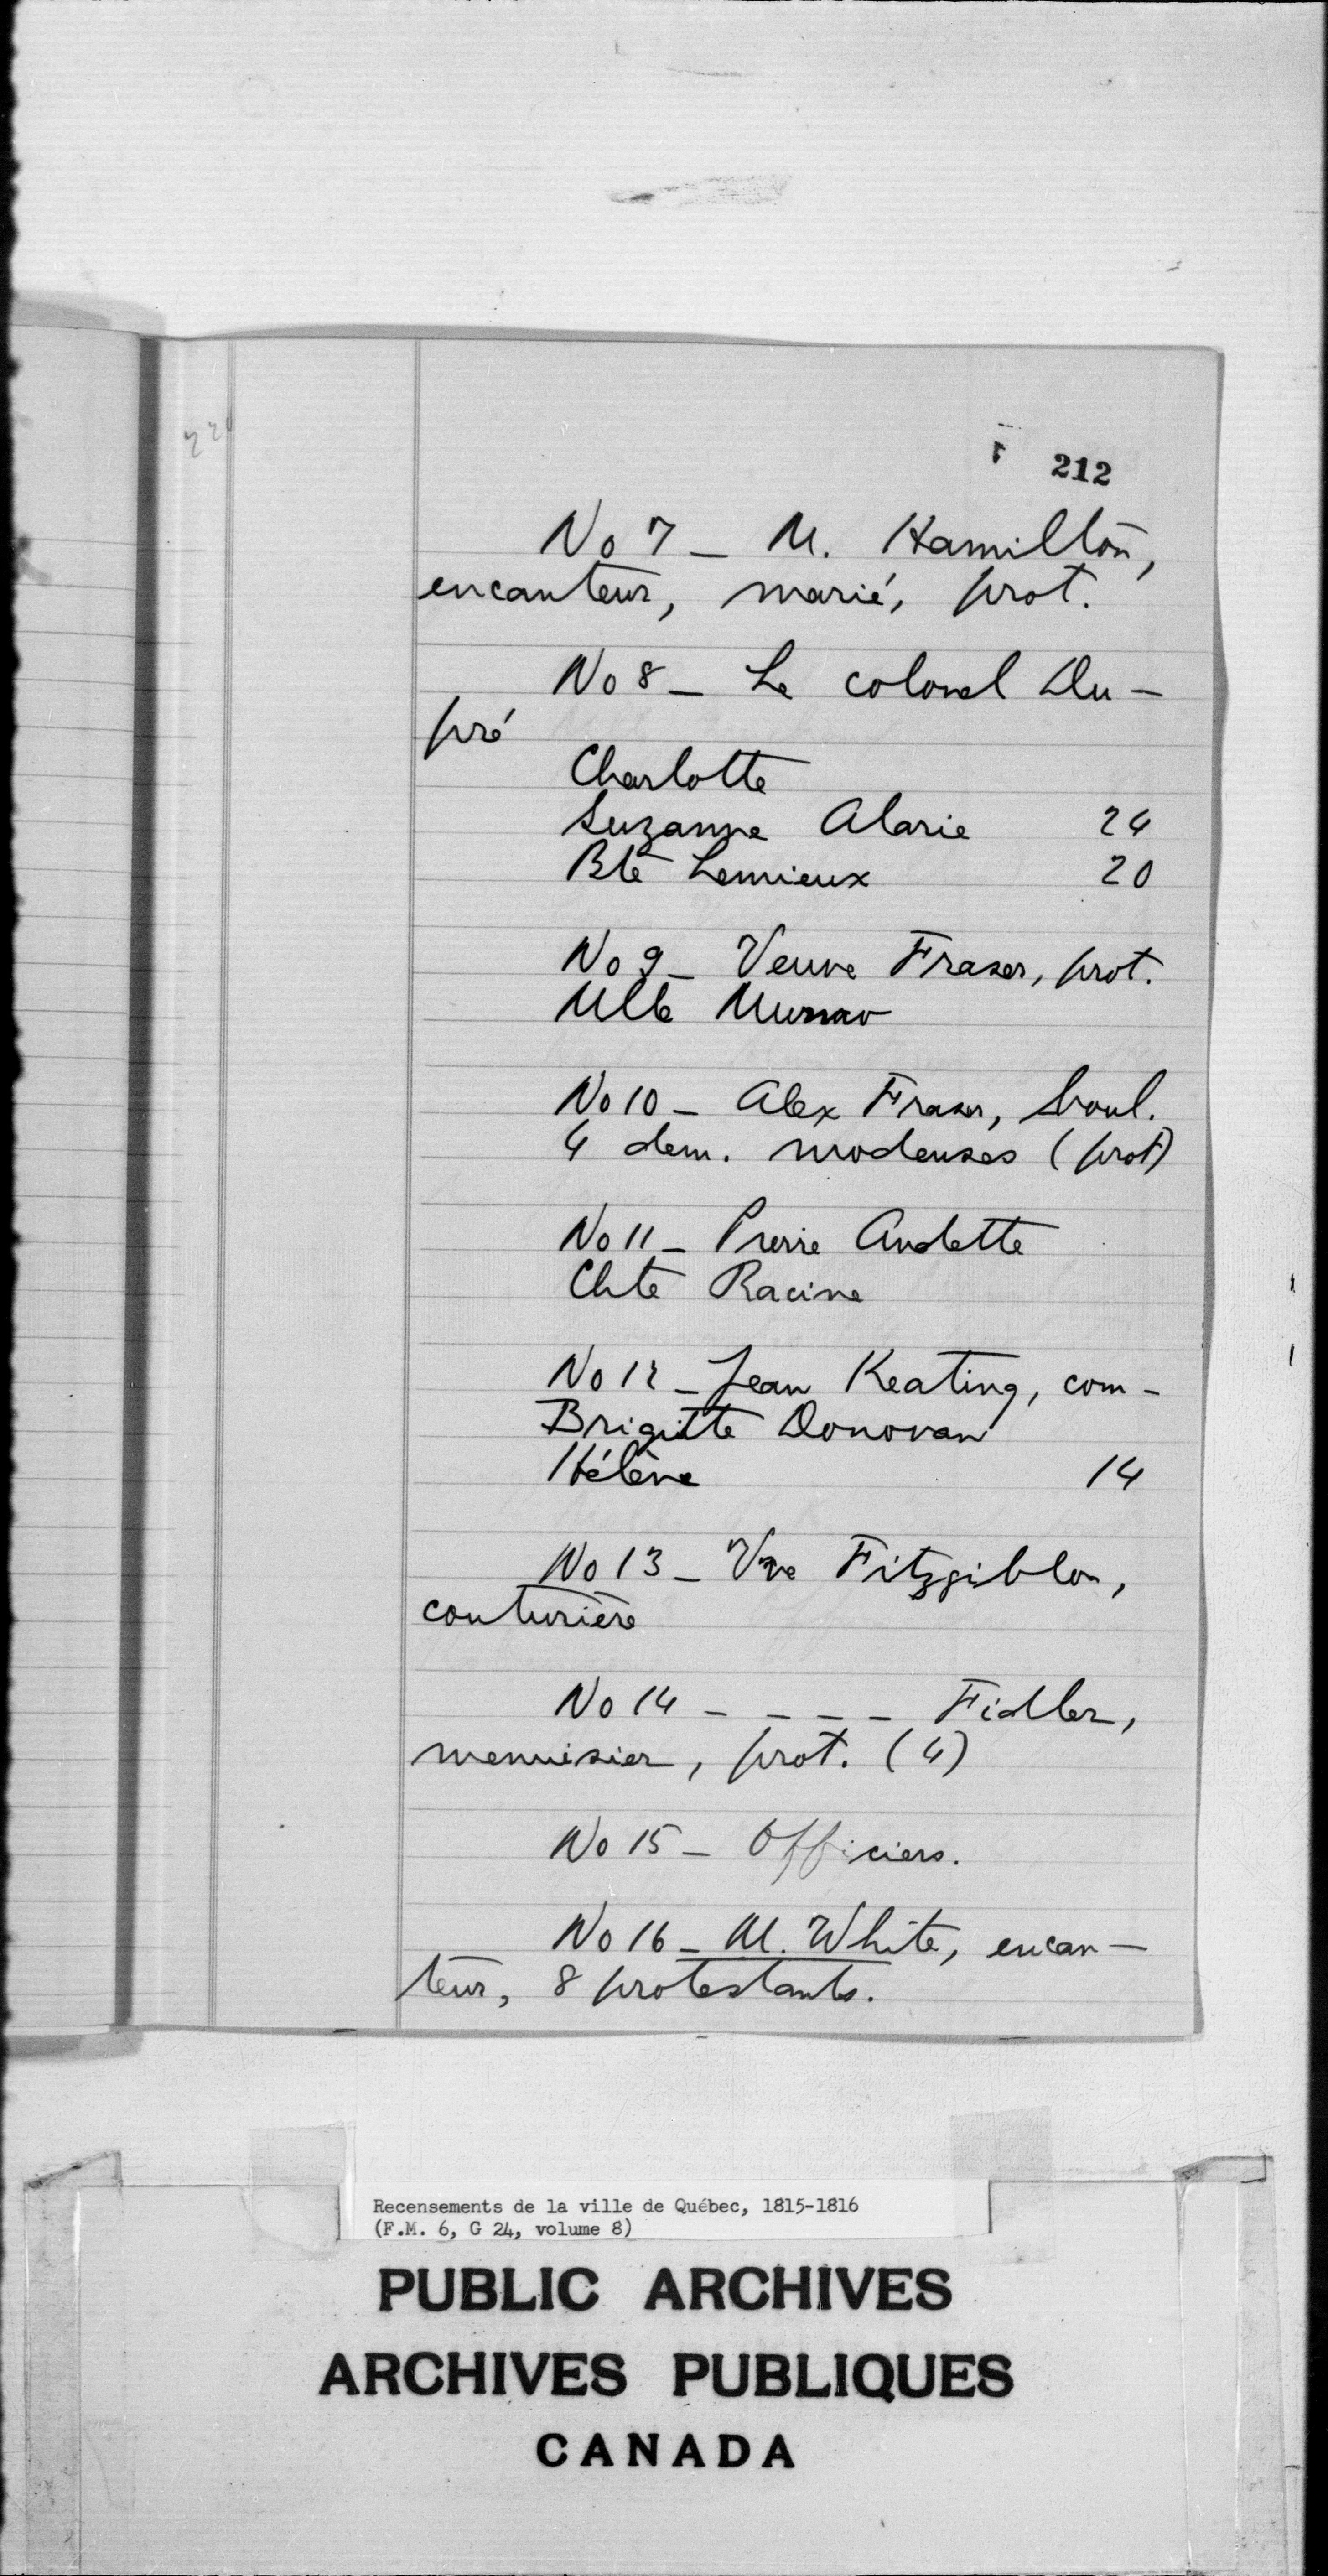 220
212
No 7 - M. Hamilton,
encanteur, marié, prot.
No 8 - Le colonel Du-
pré
Charlotte
Suzanne Alarie 24
Bte Lemieux 20
No 9 - Veuve Fraser, prot.
Mlle
No 10 - Alex Fraser, boul.
4 dem. modeuses (prot)
No 11 - Pierre Audette
Chte Racine
No 12 - Jean Keating, com-
Brigitte Donovan
Hélène 14
No 13 - Vve Fitzgibbon,
couturière
No 14 - - - - Fidler,
menuisier, prot. (4)
No 15 - Officiers.
No 16 - M. White, encan-
teur, 8 protestants.
Recensements de la ville de Québec, 1815-1816
(F.M. 6, G 24, volume 8)
PUBLIC ARCHIVES
ARCHIVES PUBLIQUES
CANADA